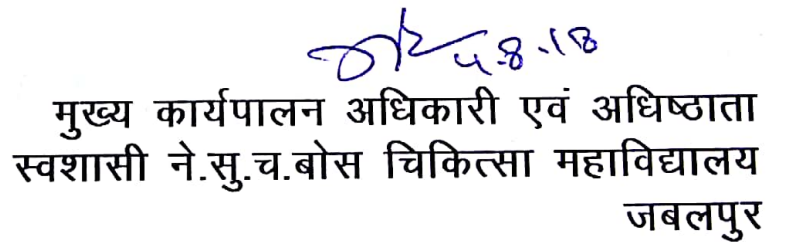 4.8.18
मुख्य कार्यपालन अधिकारी एवं अधिष्ठाता
स्वशासी ने.सु.च.बोस चिकित्सा महाविद्यालय
जबलपुर